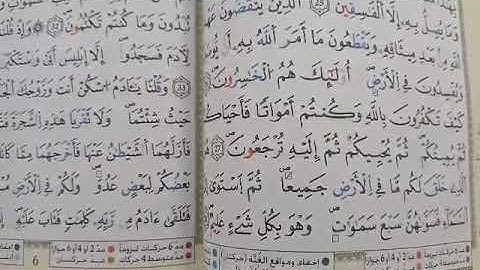 يُضِلُّ بِهِۦٓ إِلَّا ٱلْفَٰسِقِينَ ٢٦ ٱلَّذِينَ يَنقُضُونَ عَهْدَ
ٱللَّهِ مِنۢ بَعْدِ مِيثَٰقِهِۦ وَيَقْطَعُونَ مَآ أَمَرَ ٱللَّهُ بِهِۦٓ أَن يُوصَلَ
وَيُفْسِدُونَ فِي ٱلْأَرْضِ أُو۟لَٰٓئِكَ هُمُ ٱلْخَٰسِرُونَ ٢٧
كَيْفَ تَكْفُرُونَ بِٱللَّهِ وَكُنتُمْ أَمْوَٰتًا فَأَحْيَٰكُمْ
ثُمَّ يُمِيتُكُمْ ثُمَّ يُحْيِيكُمْ ثُمَّ إِلَيْهِ تُرْجَعُونَ
ٱلَّذِي خَلَقَ لَكُم مَّا فِي ٱلْأَرْضِ جَمِيعًا ثُمَّ ٱسْتَوَىٰٓ
ٱلسَّمَآءِ فَسَوَّىٰهُنَّ سَبْعَ سَمَٰوَٰتٍ وَهُوَ بِكُلِّ شَيْءٍ عَلِيمٌ
تُبْدُونَ وَمَا كُنتُمْ تَكْتُمُونَ ٣٣ وَإِذْ
لِأٓدَمَ فَسَجَدُوٓا۟ إِلَّآ إِبْلِيسَ أَبَىٰ وَٱسْتَكْبَرَ
وَقُلْنَا يَٰٓـَٔادَمُ ٱسْكُنْ أَنتَ وَزَوْجُكَ
حَيْثُ شِئْتُمَا وَلَا تَقْرَبَا هَٰذِهِ ٱلشَّجَرَةَ
فَأَزَلَّهُمَا ٱلشَّيْطَٰنُ عَنْهَا فَأَخْرَجَهُمَا مِمَّا كَانَا
بَعْضُكُمْ لِبَعْضٍ عَدُوٌّ وَلَكُمْ فِي ٱلْأَرْضِ
فَتَلَقَّىٰٓ ءَادَمُ مِن رَّبِّهِۦ كَلِمَٰتٍ فَتَابَ عَلَيْهِ
6